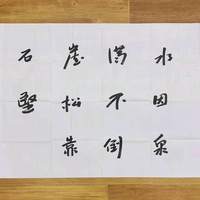 水因泉
滿不倒
崖松靠
石堅